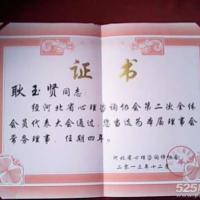 证书
耿玉贤同志：
经河北省心理咨询师协会第二次全体
会员代表大会通过，您当选为本届理事会
常务理事，任期四年。
河北省心理咨询师协会
二〇一三年十二月
525